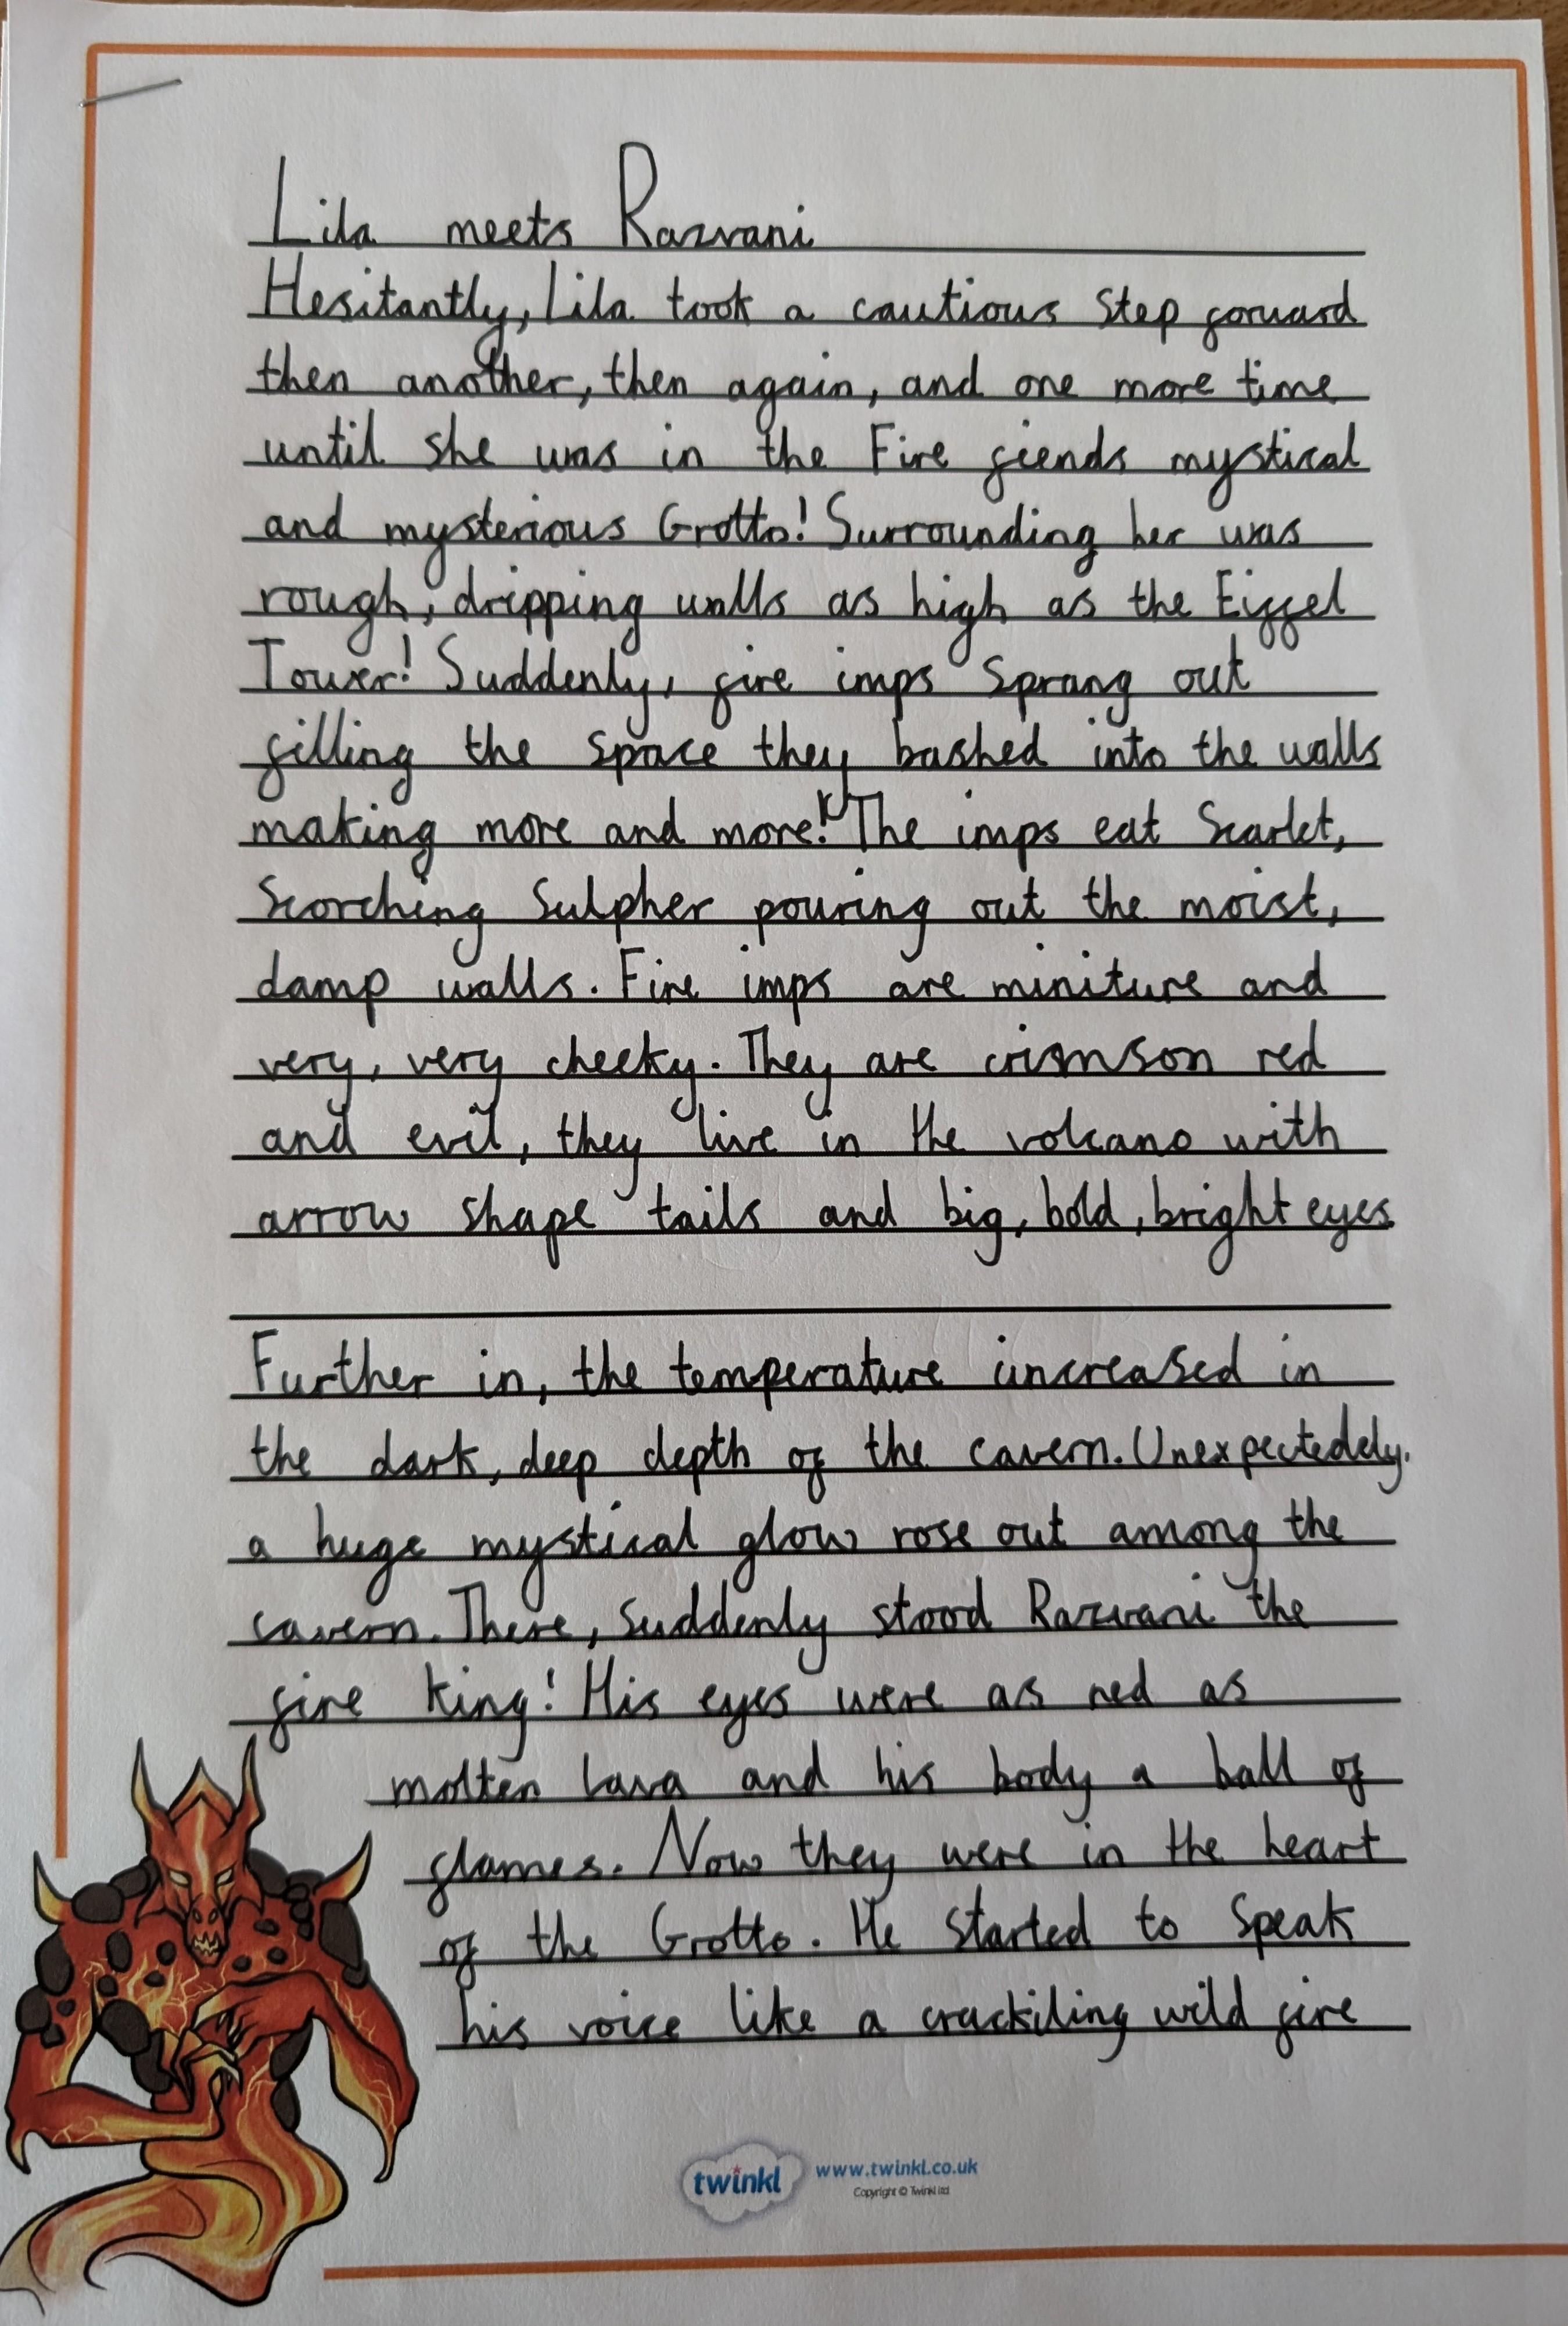 Lila meets Razvani
Hesitantly, Lila took a cautious step forward
then another, then again, and one more time
until she was in the Fire fiends mystical
and mysterious Grotto! Surrounding her was
rough, dripping walls as high as the Eiffel
Tower! Suddenly, fire imps sprang out
filling the space they bashed into the walls
making more and more! The imps eat scarlet,
scorching sulpher pouring out the moist,
damp walls. Fire imps are miniture and
very, very cheeky. They are crismson red
and evil, they live in the volcano with
arrow shape tails and big, bold, bright eyes
Further in, the temperature increased in
the dark, deep depth of the cavern. Unexpectedely,
a huge mystical glow rose out among the
cavern. There, suddenly stood Razvani the
fire king! His eyes were as red as
molten lava and his body a ball of
flames. Now they were in the heart
of the Grotto. He started to speak
his voice like a crackiling wild fire
twinkl www.twinkl.co.uk
Copyright © Twinkl Ltd